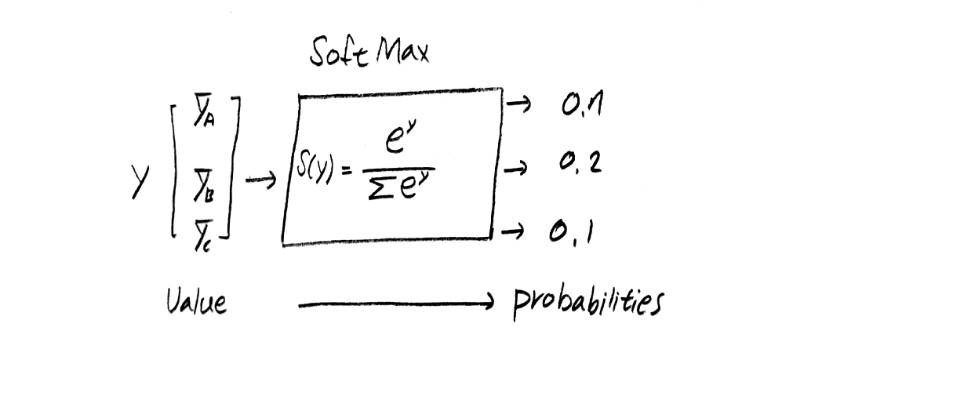 SoftMax
Y [ y̅A y̅B y̅C ] → S(y) = e^y / Σe^y
→ 0.7
→ 0.2
→ 0.1
Value → probabilities